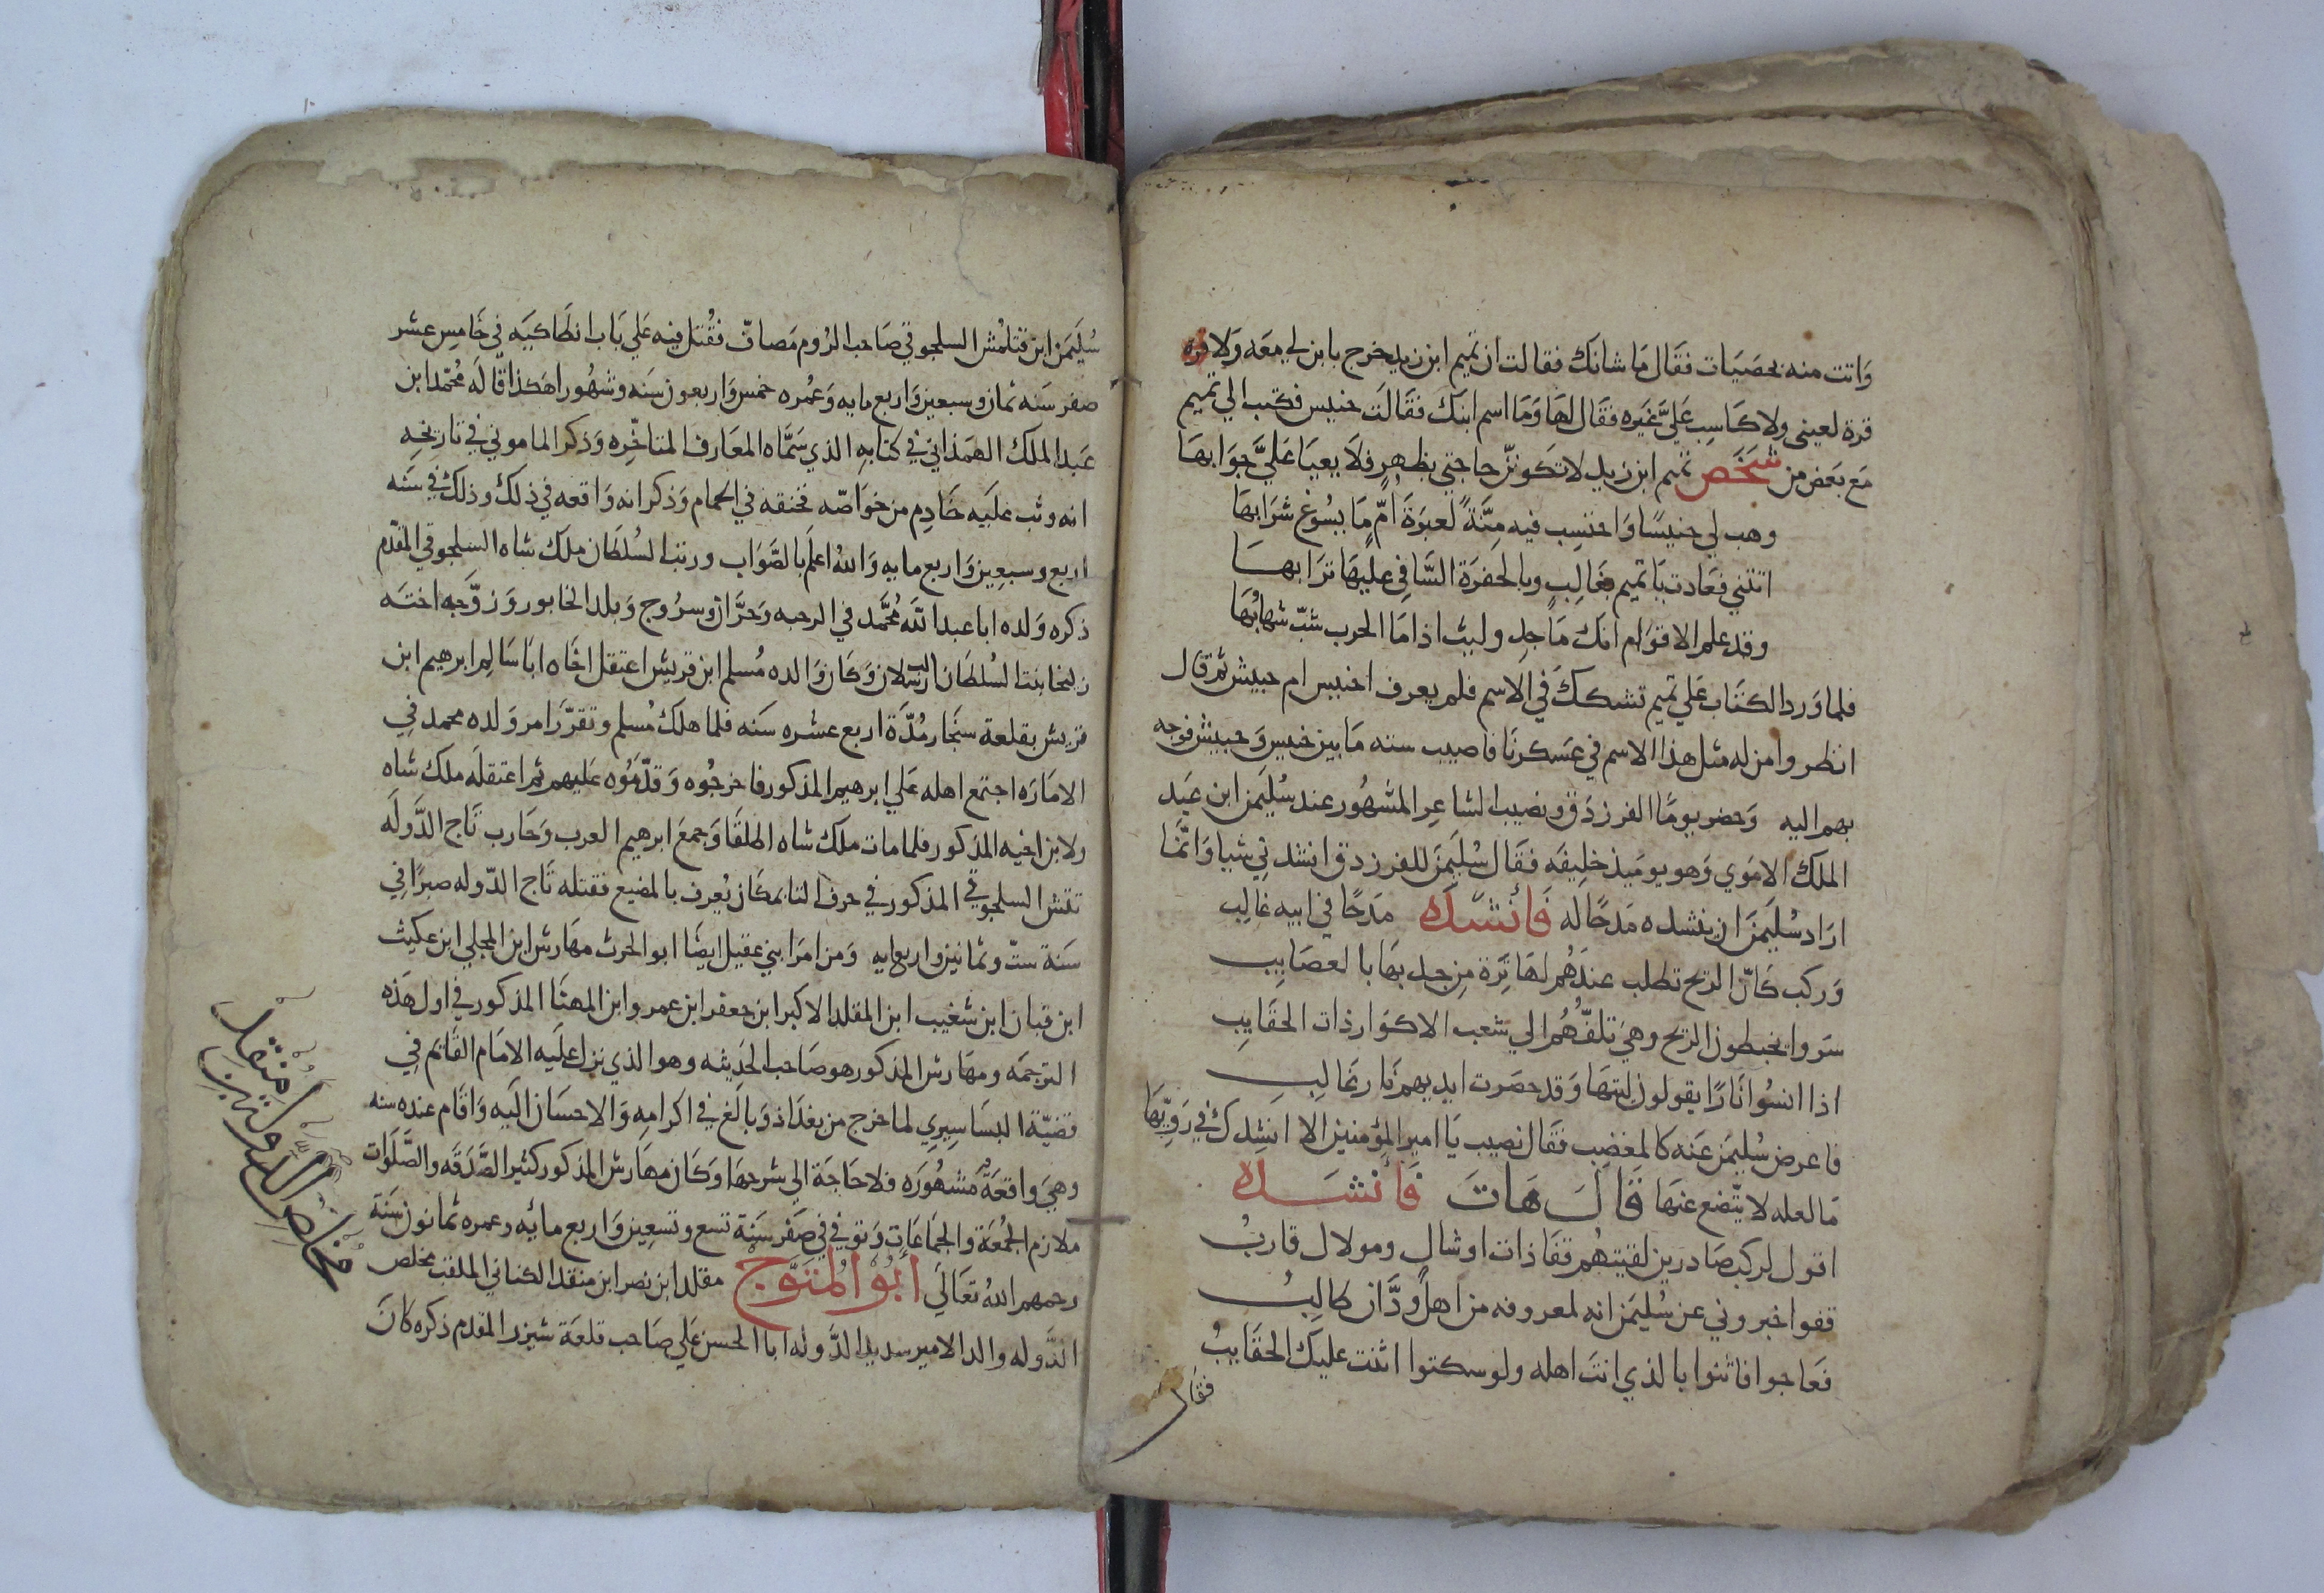 واتت منه بحصيات فقال ما شانك فقالت ان تميم ابن زيد خرج بابن لي معه ولا قره
قرة لعيني ولا كاسب علي غيره فقال لها وما اسم ابنك فقالت خنيس فكتب الي تميم
مع بعض من شخص تميم ابن زيد لا تكونن حاجتي بظهر فلا يعيا علي جوابها
وهب لي خنيسا واحتسب فيه منة لعبرة ام ما يسوغ شرابها
اتتني فعادت يا تميم بغالب وبالحفرة السافي عليها ترابها
وقد علم الاقوام انك ماجد وليث اذا ما الحرب شب شهابها
فلما ورد الكتاب علي تميم تشكك في الاسم فلم يعرف اخنيس ام حبيش ثم قال
انظروا من له مثل هذا الاسم في عسكرنا فاصيب سته ما بين خنيس وحبيش فوجه
بهم اليه وحضر يوما الفرزدق ونصيب الشاعر المشهور عند سليمن ابن عبد
الملك الاموي وهو يوميذ خليفه فقال سليمن للفرزدق انشدني شيا وانما
اراد سليمن ان ينشده مدحا له فأنشده مدحا في ابيه غالب
وركب كان الريح تطلب عندهم لها ترة من جذبها بالعصايب
سروا يخبطون الريح وهي تلفهم الي شعب الاكوار ذات الحقايب
اذا انسوا نارا يقولون ليتها وقد حصرت ايديهم نار غالب
فاعرض سليمن عنه كالمغضب فقال نصيب يا امير المؤمنين الا انشدك في رويها
ما لعله لا يتضع عنها قال هات فأنشده
اقول لركب صادرين لقيتهم قفا ذات اوشال ومولاك قارب
قفوا خبروني عن سليمن انه لمعروفه من اهل ودان طالب
فعاجوا فاثنوا بالذي انت اهله ولو سكتوا اثنت عليك الحقايب
فقال
سليمن ابن قتلمش السلجوقي صاحب الروم مصاف فقتل فيه علي باب انطاكيه في خامس عشر
صفر سنه ثمان وسبعين واربع مايه وعمره خمس واربعون سنه وشهورا هكذا قاله محمد ابن
عبد الملك الهمذاني في كتابه الذي سماه المعارف المتاخره وذكر الماموني في تاريخه
انه وثب عليه خادم من خواصه فخنقه في الحمام وذكر انه واقعه في ذلك وذلك في سنه
اربع وسبعين واربع مايه والله اعلم بالصواب ورتب السلطان ملك شاه السلجوقي المقدم
ذكره ولده ابا عبد الله محمد في الرحبه وحران وسروج وبلد الخابور وزوجه اخته
زليخا بنت السلطان الب ارسلان وكان والده مسلم ابن قريش اعتقل اخاه ابا سالم ابرهيم ابن
قريش بقلعة سنجار مدة اربع عشره سنه فلما هلك مسلم وتقرر امر ولده محمد في
الاماره اجتمع اهله علي ابرهيم المذكور فاخرجوه وقدموه عليهم ثم اعتقله ملك شاه
ولابن اخيه المذكور فلما مات ملك شاه اطلقا وجمع ابرهيم العرب وحارب تاج الدوله
تتش السلجوقي المذكور في حرف التا بمكان يعرف بالمضيع فقتله تاج الدوله صبرا في
سنة ست وثمانين واربعمايه ومن امرا بني عقيل ايضا ابو الحرث مهارش ابن المجلي ابن عكيث
ابن قبان ابن شغيب ابن المقلد الاكبر ابن جعفر ابن عمرو ابن المهنا المذكور في اول هذه
الترجمه ومهارش المذكور هو صاحب الحديثه وهو الذي نزل عليه الامام القائم في
قضية البساسيري لما خرج من بغداد وبالغ في اكرامه والاحسان اليه واقام عنده سنه
وهي واقعة مشهوره فلا حاجة الي شرحها وكان مهارش المذكور كثير الصدقه والصلوات
ملازم الجمعة والجماعات وتوفي في صفر سنة تسع وتسعين واربع مائه وعمره ثمانون سنة
رحمهم الله تعالى ابو المتوج مقلد ابن نصر ابن منقذ الكناني الملقب مخلص
الدوله والد الامير سديد الدوله ابا الحسن علي صاحب قلعة شيزر المقدم ذكره كان
مخلص الدولة بن منقذ